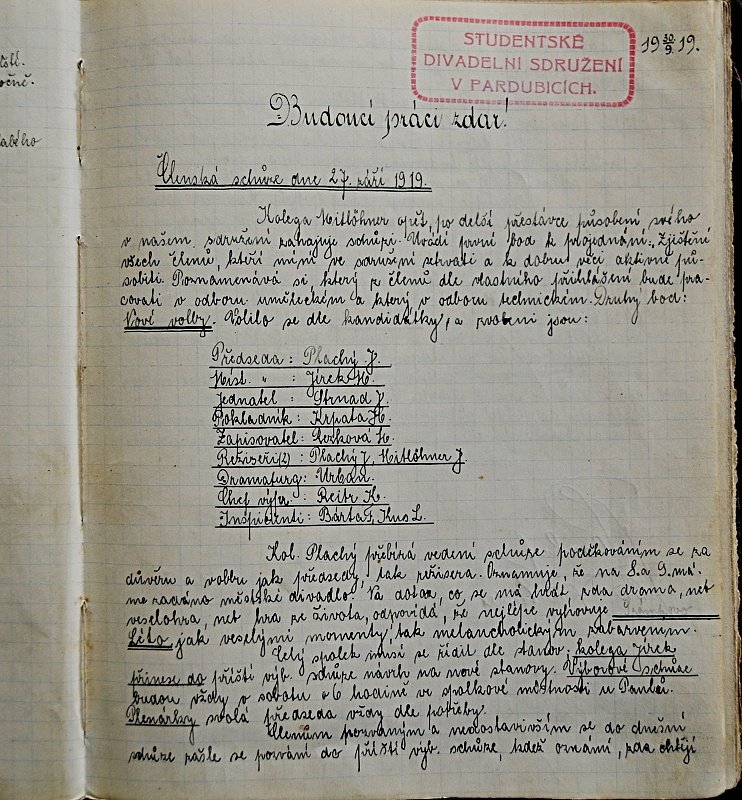 očně.
STUDENTSKÉ
DIVADELNÍ SDRUŽENÍ
V PARDUBICÍCH.
19 30/9. 19.
Budoucí práci zdar!
Členská schůze dne 27. září 1919.
Kolega Mitlöhner opět, po delší přestávce působení svého
v našem sdružení zahajuje schůzi. Uvádí první bod k projednání: Zjištění
všech členů, kteří míní ve sdružení setrvati a k dobru věci aktivně pů-
sobiti. Poznamenává si, který z členů dle vlastního přihlášení bude pra-
covati v odboru uměleckém a který v odboru technickém. Druhý bod:
Nové volby. Volilo se dle kandidátky, a zvoleni jsou:
Předseda: Plachý J.
Míst. " : Jirek H.
Jednatel : Strnad J.
Pokladník: Krpata H.
Zapisovatel: Ročková H.
Režiseři(2) : Plachý J, Mitlöhner J.
Dramaturg: Urban.
Chef výpr. : Reitr K.
Inspicienti: Bárta F, Kus L.
Kol. Plachý přebírá vedení schůze poděkováním se za
důvěru a volbu jak předsedy, tak režisera. Oznamuje, že na 8. a 9. má-
me zadáno městské divadlo. Na dotaz, co se má hrát zda drama, neb
veselohra, neb hra ze života, odpovídá, že nejlépe vyhovuje Šrámkovo
Léto jak veselými momenty, tak melancholickým zabarvením.
Celý spolek musí se řídit dle stanov; kolega Jirek
přinese do příští výb. schůze návrh na nové stanovy. Výborové schůze
budou vždy v sobotu o 6 hodině ve spolkové místnosti u
Plenárky svolá předseda vždy dle potřeby.
Členům pozvaným a nedostavivším se do dnešní
schůze zašle se pozvání do příští výb. schůze, kdež oznámí, zda chtějí